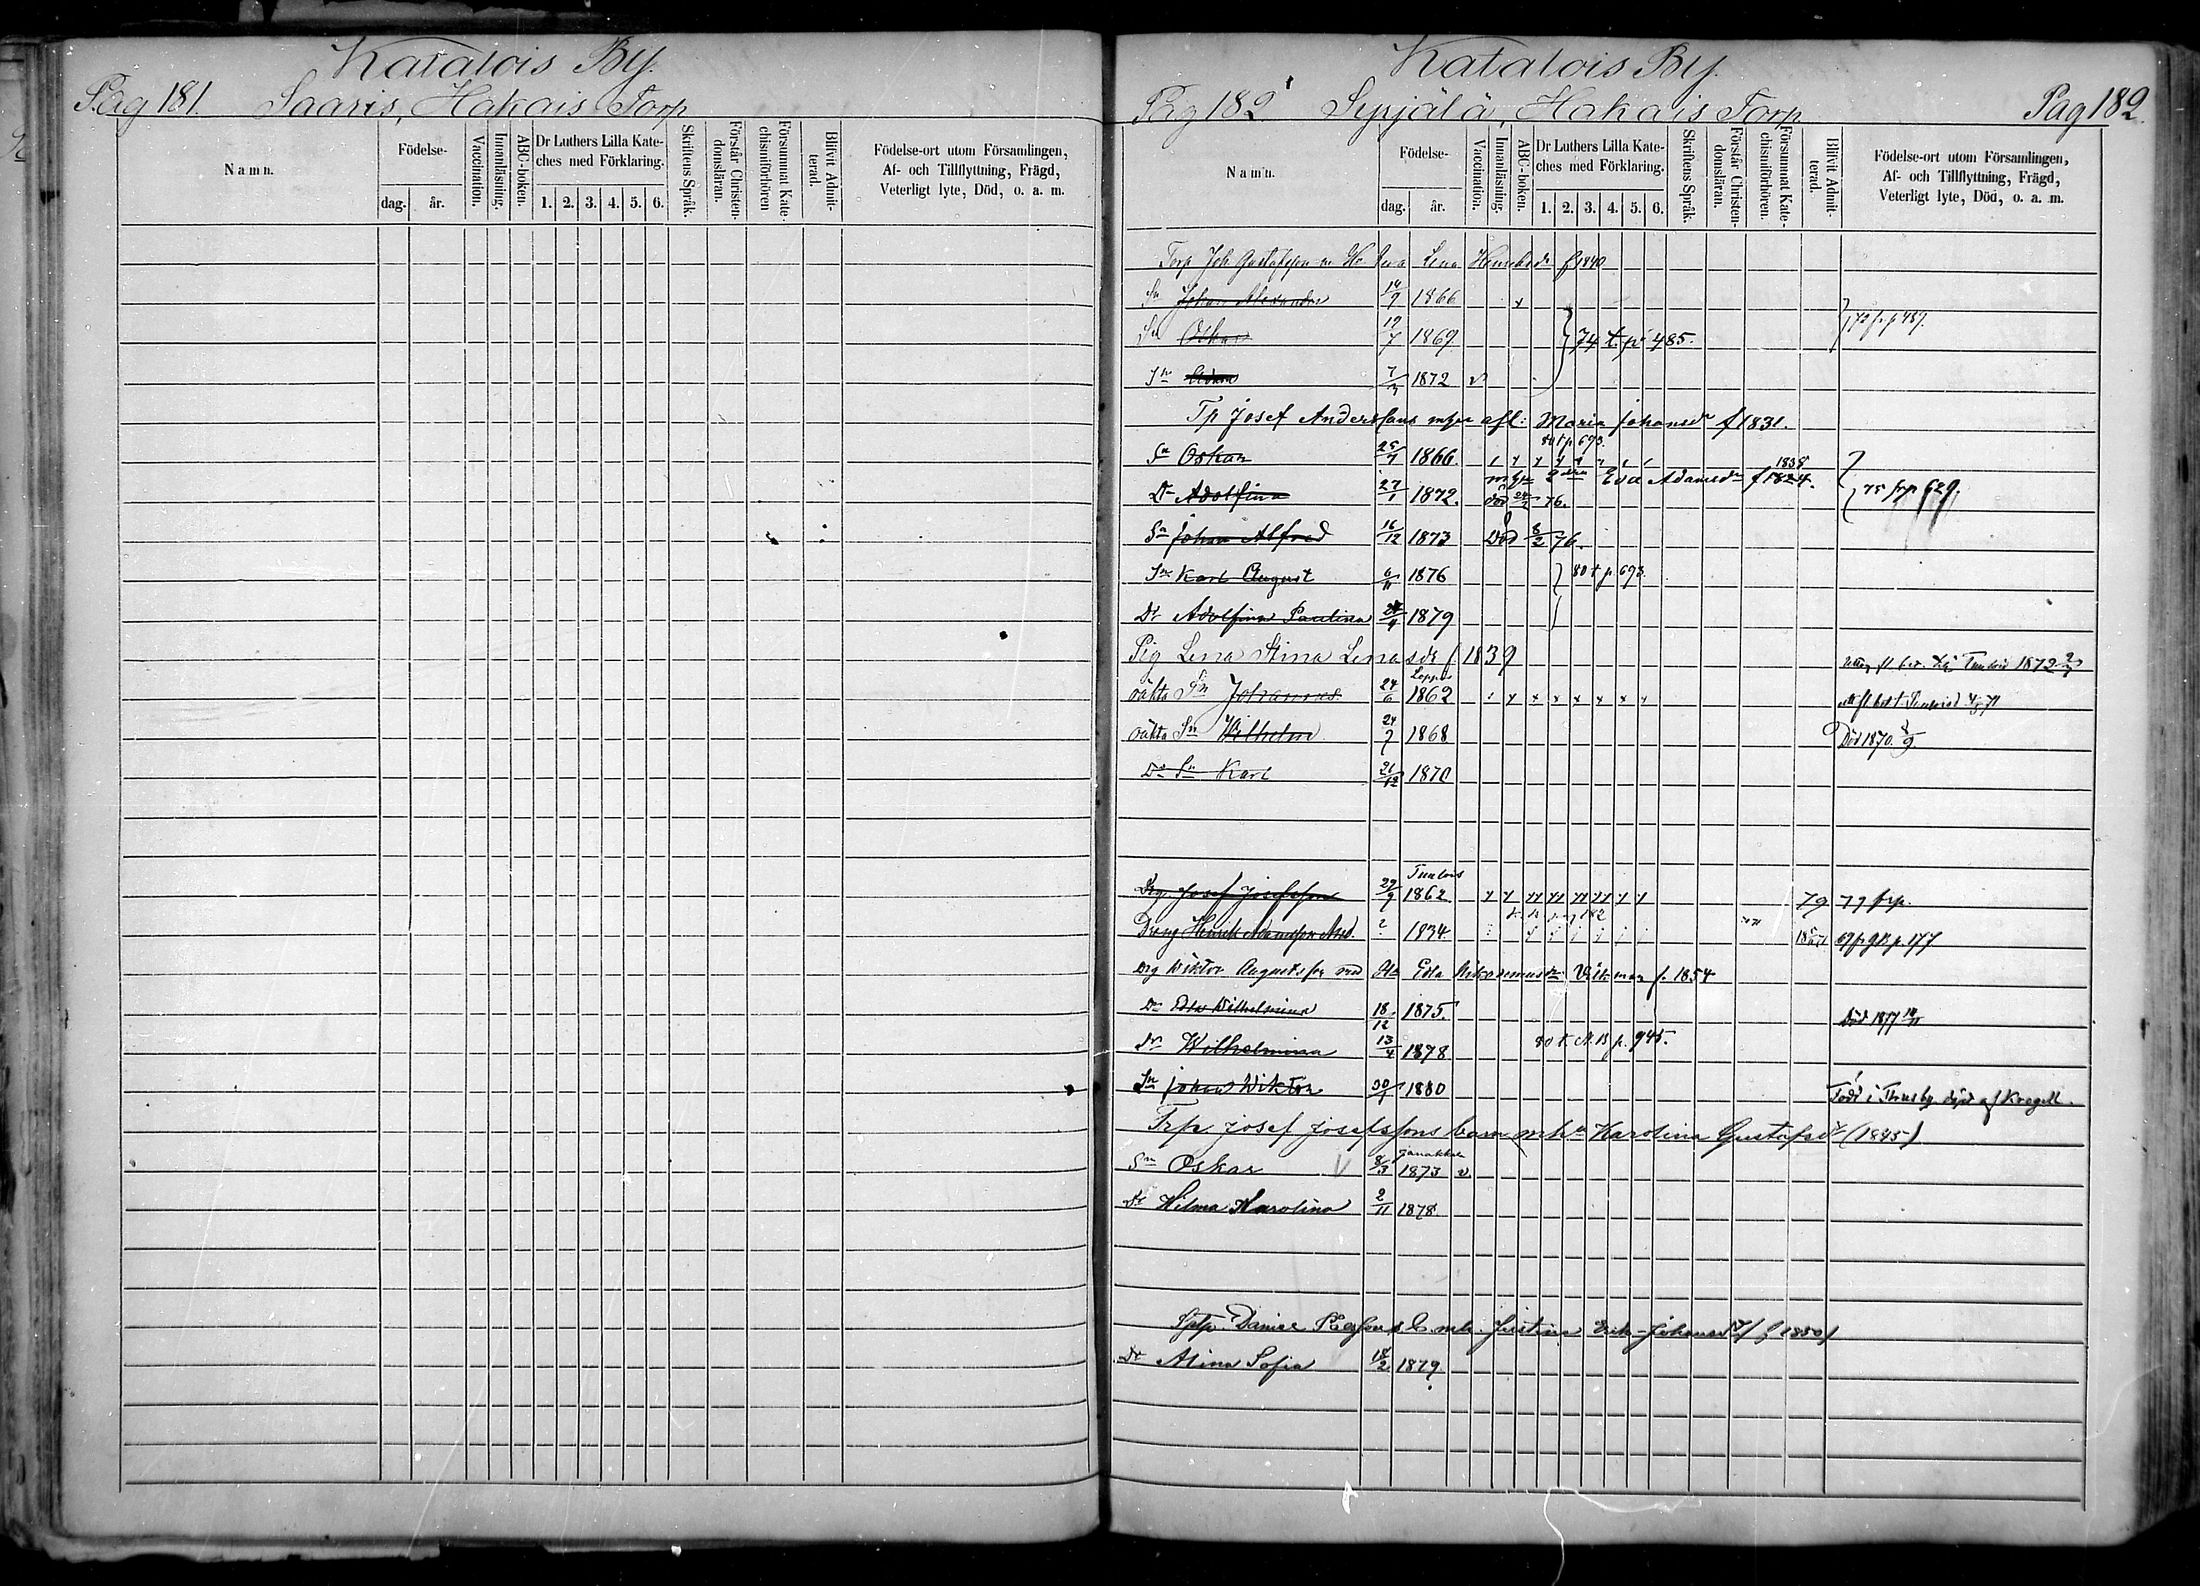 Katalois By.
Pag 181. Saaris, Hakais Torp
Namn.
Födelse-
dag. år.
Vaccination.
Innanläsning.
ABC-boken.
Dr Luthers Lilla Kate-
ches med Förklaring.
1. 2. 3. 4. 5. 6.
Skriftens Språk.
Förstår Christen-
domsläran.
Försummat Kate-
chismiförhören
Blifvit Admit-
terad.
Födelse-ort utom Församlingen,
Af- och Tillflyttning, Frägd,
Veterligt lyte, Död, o. a. m.
Katalois By.
Pag 182 Syrjälä, Hakais Torp Pag 182.
Namn.
Födelse-
dag. år.
Vaccination.
Innanläsning.
ABC-boken.
Dr Luthers Lilla Kate-
ches med Förklaring.
1. 2. 3. 4. 5. 6.
Skriftens Språk.
Förstår Christen-
domsläran.
Försummat Kate-
chismiförhören.
Blifvit Admit-
terad.
Födelse-ort utom Församlingen,
Af- och Tillflyttning, Frägd,
Veterligt lyte, Död, o. a. m.
Torp Joh Gustafsson m H Lena f 1840
Sn Johan Alexander 1866 x
Sn Oskar 1869 74 t. p 485.
Sn 7/3 1872 v
Tp Josef Anderssons m afl: Maria Johansdr f 1831.
80 t p 693.
Sn Oskar 25/7 1866
m 2dra Eva Adamsdr f 1824. 1838
Dr Adolfina 27/1 1872. död 76. 75 frp 629.
Sn Johan Alfred 16/12 1873 Död 8/2 76.
Sn Karl August 6/11 1876 80 t p. 693.
Dr Adolfina Paulina 1879
Pig Lena Stina Lenasdr f 1839 Tuulois 1872
oäkta Sn Johannes 24/6 1862
oäkta Sn Wilhelm 24/7 1868 Död 1870
Do Sn Karl 21/12 1870
Tuulois
Drg. Josef Josefsson 29/9 1862 79 79 frp.
Dreng Henrik Adamsson 1834 69 p. 177
Drg Wiktor Augustsson med Edla Nikodemusdr f. 1854
Dr Edla Wilhelmina 18/12 1875. Död 1877
Dr Wilhelmina 13/4 1878 80 t. N. B p. 945.
Sn Johan Wiktor 30/1 1880 Född i Thusby
Trp Josef Josefssons barn m h Karolina Gustafsdr (1845)
Janakkala
Sn Oskar V 8/3 1873 v
Dr Hilma Karolina 2/11 1878
Daniel m h. Justina Erik-Johansdr f 1850
Dr Alina Sofia 18/2 1879